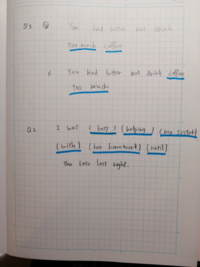 Q3 Q You had better not drink
too much coffee
A You had better not drink coffee
too much
Q2 I was (busy) (helping) (my sister)
(with) (her homework) (until)
the late last night.